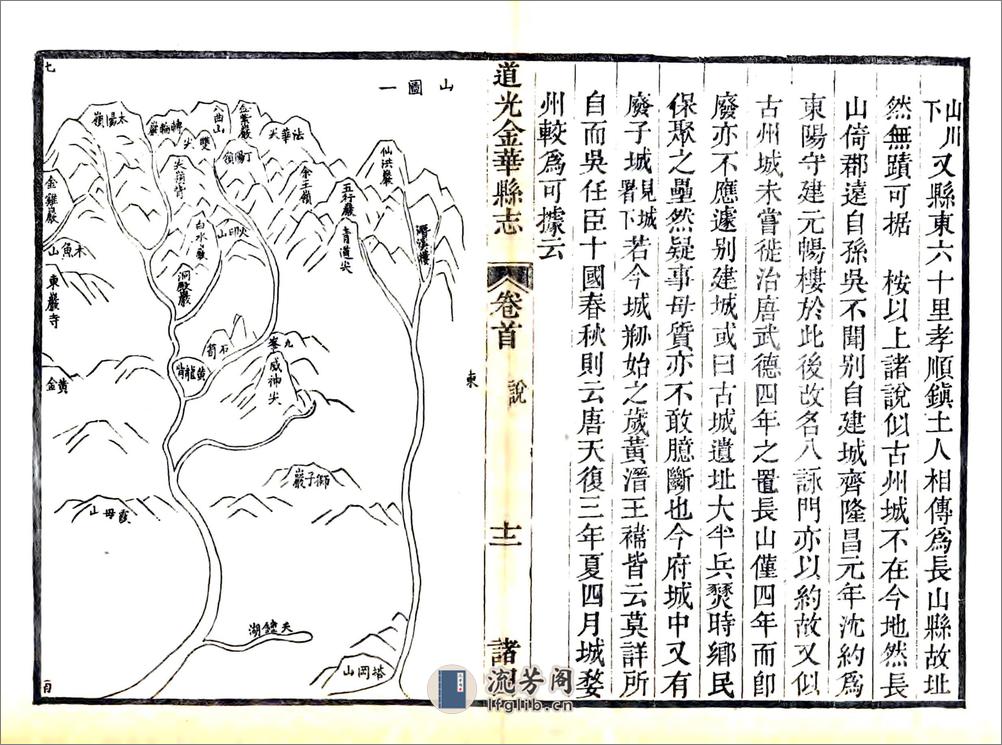 山川下又縣東六十里孝順鎮土人相傳爲長山縣故址
然無蹟可据　桉以上諸說似古州城不在今地然長
山倚郡遠自孫吳不聞別自建城齊隆昌元年沈約爲
東陽守建元暢樓於此後改名八詠門亦以約故又似
古州城未嘗徙治唐武德四年之置長山僅四年而卽
廢亦不應遽別建城或曰古城遺址大半兵燹時鄉民
保聚之壘然疑事毋質亦不敢臆斷也今府城中又有
廢子城見城署下若今城刱始之歲黃溍王禕皆云莫詳所
自而吳任臣十國春秋則云唐天復三年夏四月城婺
州較爲可據云
道光金華縣志
卷首
說
十二
諸圖
山圖一
東
仙洪巖
五行巖
青蓮尖
潛溪樓
法華尖
金主嶺
金紫巖
八面山
丁陽嶺
雙尖
轉輪巖
太陽嶺
尖
白水巖
印山
洞殿巖
金雞巖
木魚山
東巖寺
石筍
九峯
威神尖
黃龍脊
黃金
獅子巖
霞母山
天鏡湖
塔岡山
七
一百
流芳阁
lfglib.cn